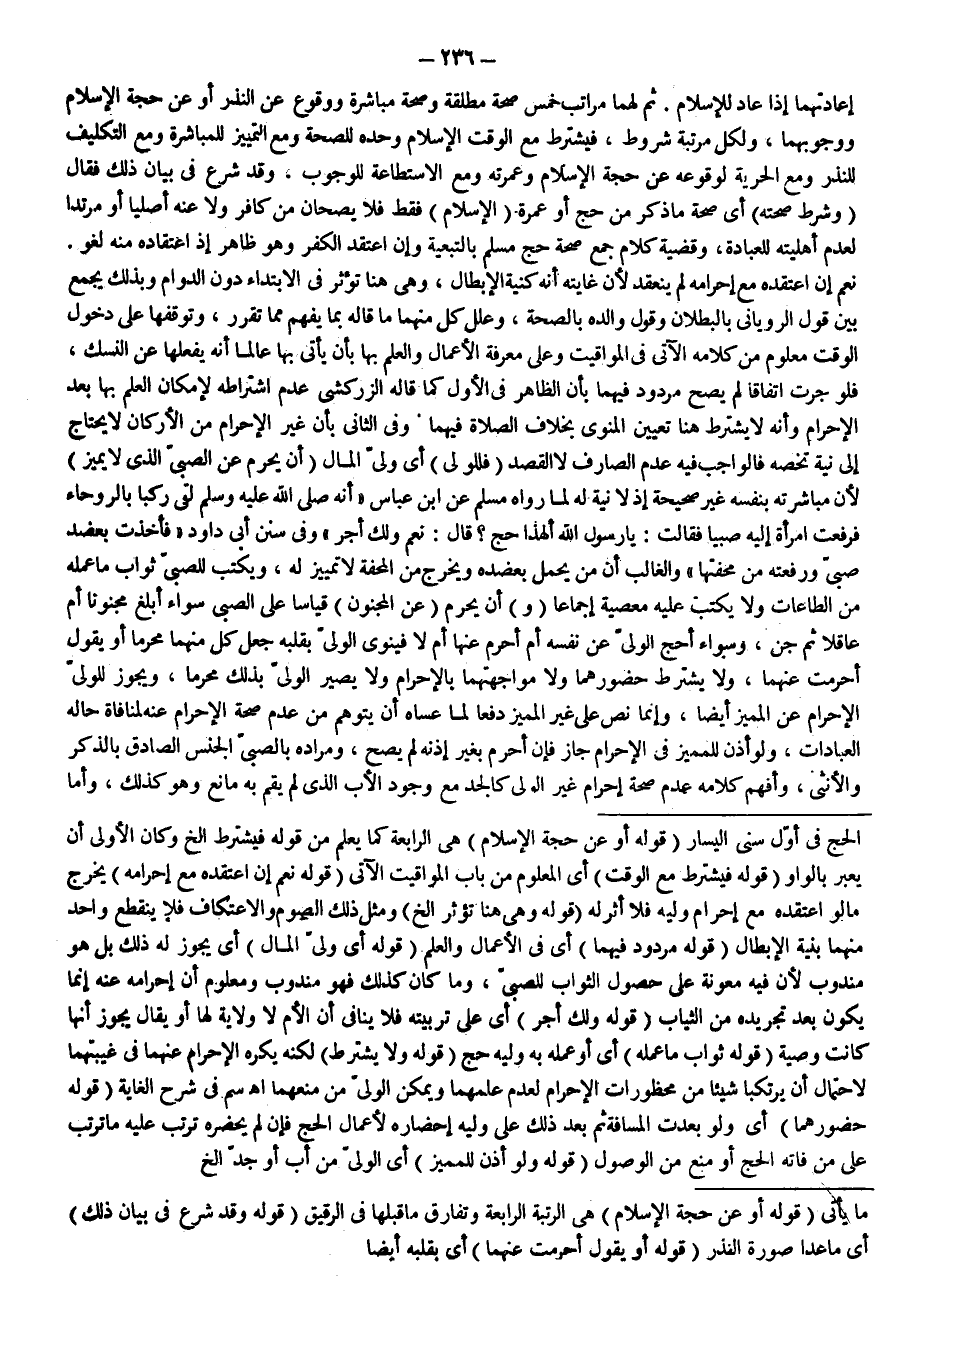 – ٢٣٦ –
إعادتهما إذا عاد للإسلام . ثم لهما مراتب خمس صحة مطلقة وصحة مباشرة ووقوع عن النذر أو عن حجة الإسلام
ووجوبهما ، ولكل مرتبة شروط ، فيشترط مع الوقت الإسلام وحده للصحة ومع التمييز للمباشرة ومع التكليف
للنذر ومع الحرية لوقوعه عن حجة الإسلام وعمرته ومع الاستطاعة للوجوب ، وقد شرع فى بيان ذلك فقال
( وشرط صحته) أى صحة ماذكر من حج أو عمرة ( الإسلام ) فقط فلا يصحان من كافر ولا عنه أصليا أو مرتدا
لعدم أهليته للعبادة ، وقضية كلام جمع صحة حج مسلم بالتبعية وإن اعتقد الكفر وهو ظاهر إذ اعتقاده منه لغو .
نعم إن اعتقده مع إحرامه لم ينعقد لأن غايته أنه كنية الإبطال ، وهى هنا تؤثر فى الابتداء دون الدوام وبذلك يجمع
بين قول الرويانى بالبطلان وقول والده بالصحة ، وعلل كل منهما ما قاله بما يفهم مما تقرر ، وتوقفها على دخول
الوقت معلوم من كلامه الآتى فى المواقيت وعلى معرفة الأعمال والعلم بها بأن يأتى بها عالما أنه يفعلها عن النسك ،
فلو جرت اتفاقا لم يصح مردود فيهما بأن الظاهر فى الأول كما قاله الزركشى عدم اشتراطه لإمكان العلم بها بعد
الإحرام وأنه لايشترط هنا تعيين المنوى بخلاف الصلاة فيهما ٬ وفى الثانى بأن غير الإحرام من الأركان لايحتاج
إلى نية تخصه فالواجب فيه عدم الصارف لا القصد ( فللولى ) أى ولىّ المال ( أن يحرم عن الصبىّ الذى لايميز )
لأن مباشرته بنفسه غير صحيحة إذ لا نية له لما رواه مسلم عن ابن عباس « أنه صلى الله عليه وسلم لقى ركبا بالروحاء
فرفعت امرأة إليه صبيا فقالت : يارسول الله ألهذا حج ؟ قال : نعم ولك أجر » وفى سنن أبى داود « فأخذت بعضد
صبىّ ورفعته من محفتها » والغالب أن من يحمل بعضده ويخرج من المحفة لاتمييز له ، ويكتب للصبىّ ثواب ماعمله
من الطاعات ولا يكتب عليه معصية إجماعا ( و ) أن يحرم ( عن المجنون ) قياسا على الصبى سواء أبلغ مجنونا أم
عاقلا ثم جن ، وسواء أحج الولىّ عن نفسه أم أحرم عنها أم لا فينوى الولىّ بقلبه جعل كل منهما محرما أو يقول
أحرمت عنهما ، ولا يشترط حضورهما ولا مواجهتهما بالإحرام ولا يصير الولىّ بذلك محرما ، ويجوز للولىّ
الإحرام عن المميز أيضا ، وإنما نص على غير المميز دفعا لما عساه أن يتوهم من عدم صحة الإحرام عنه لمنافاة حاله
العبادات ، ولو أذن للمميز فى الإحرام جاز فإن أحرم بغير إذنه لم يصح ، ومراده بالصبىّ الجنس الصادق بالذكر
والأنثى ، وأفهم كلامه عدم صحة إحرام غير الولى كالجد مع وجود الأب الذى لم يقم به مانع وهو كذلك ، وأما
الحج فى أوّل سنى اليسار ( قوله أو عن حجة الإسلام ) هى الرابعة كما يعلم من قوله فيشترط الخ وكان الأولى أن
يعبر بالواو ( قوله فيشترط مع الوقت ) أى المعلوم من باب المواقيت الآتى ( قوله نعم إن اعتقده مع إحرامه ) يخرج
مالو اعتقده مع إحرام وليه فلا أثر له (قوله وهى هنا تؤثر الخ) ومثل ذلك الصوم والاعتكاف فلا ينقطع واحد
منهما بنية الإبطال ( قوله مردود فيهما ) أى فى الأعمال والعلم ( قوله أى ولىّ المال ) أى يجوز له ذلك بل هو
مندوب لأن فيه معونة على حصول الثواب للصبىّ ، وما كان كذلك فهو مندوب ومعلوم أن إحرامه عنه إنما
يكون بعد تجريده من الثياب ( قوله ولك أجر ) أى على تربيته فلا ينافى أن الأم لا ولاية لها أو يقال يجوز أنها
كانت وصية ( قوله ثواب ماعمله ) أى أو عمله به وليه حج ( قوله ولا يشترط ) لكنه يكره الإحرام عنهما فى غيبتهما
لاحتمال أن يرتكبا شيئا من محظورات الإحرام لعدم علمهما ويمكن الولىّ من منعهما اهـ سم فى شرح الغاية ( قوله
حضورهما ) أى ولو بعدت المسافة ثم بعد ذلك على وليه إحضاره لأعمال الحج فإن لم يحضره ترتب عليه ماترتب
على من فاته الحج أو منع من الوصول ( قوله ولو أذن للمميز ) أى الولىّ من أب أو جدّ الخ
ما يأتى ( قوله أو عن حجة الإسلام ) هى الرتبة الرابعة وتفارق ماقبلها فى الرقيق ( قوله وقد شرع فى بيان ذلك )
أى ماعدا صورة النذر ( قوله أو يقول أحرمت عنهما ) أى بقلبه أيضا